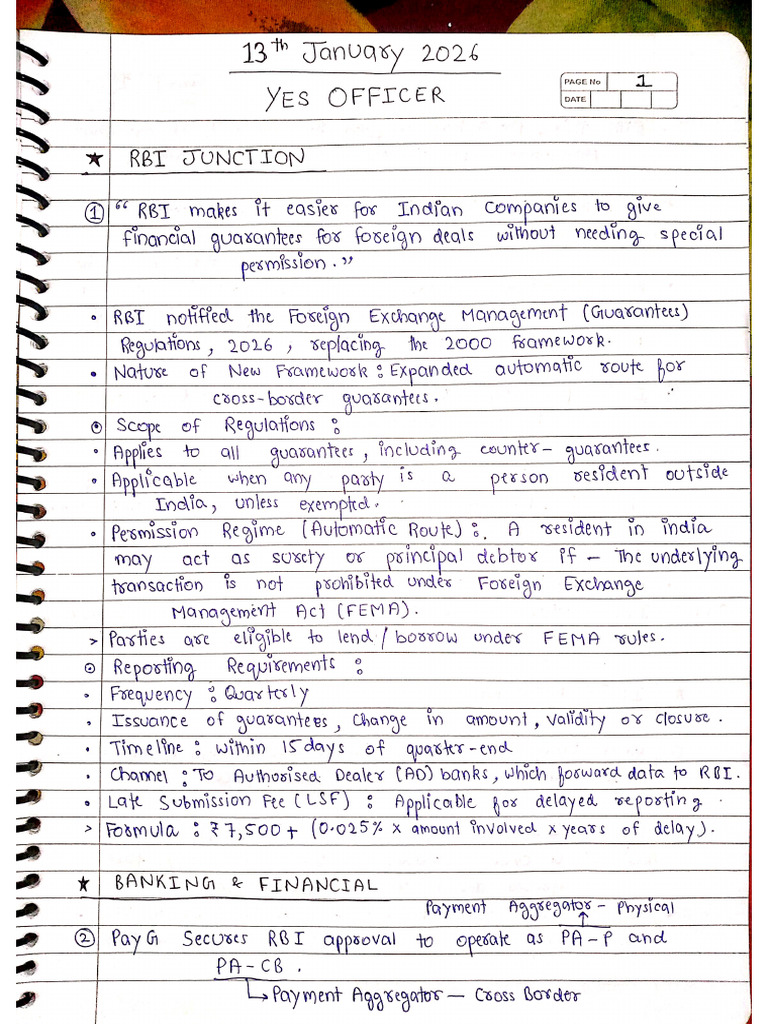 13th January 2026
YES OFFICER
PAGE No 1
DATE
★ RBI JUNCTION
① "RBI makes it easier for Indian Companies to give
financial guarantees for foreign deals without needing special
permission."
• RBI notified the Foreign Exchange Management (Guarantees)
Regulations, 2026, replacing the 2000 framework.
• Nature of New Framework: Expanded automatic route for
cross-border guarantees.
⊙ Scope of Regulations:
• Applies to all guarantees, including counter-guarantees.
• Applicable when any party is a person resident outside
India, unless exempted.
• Permission Regime (Automatic Route): A resident in india
may act as surety or principal debtor if - The underlying
transaction is not prohibited under Foreign Exchange
Management Act (FEMA).
> Parties are eligible to lend/borrow under FEMA rules.
⊙ Reporting Requirements:
• Frequency: Quarterly
• Issuance of guarantees, Change in amount, validity or closure.
• Timeline: within 15 days of quarter-end
• Channel: To Authorised Dealer (AD) banks, which forward data to RBI.
• Late Submission Fee (LSF): Applicable for delayed reporting.
> Formula: ₹7,500 + (0.025% x amount involved x years of delay).
★ BANKING & FINANCIAL
Payment Aggregator - Physical
② PayG Secures RBI approval to operate as PA-P and
PA-CB.
↳ Payment Aggregator - Cross Border